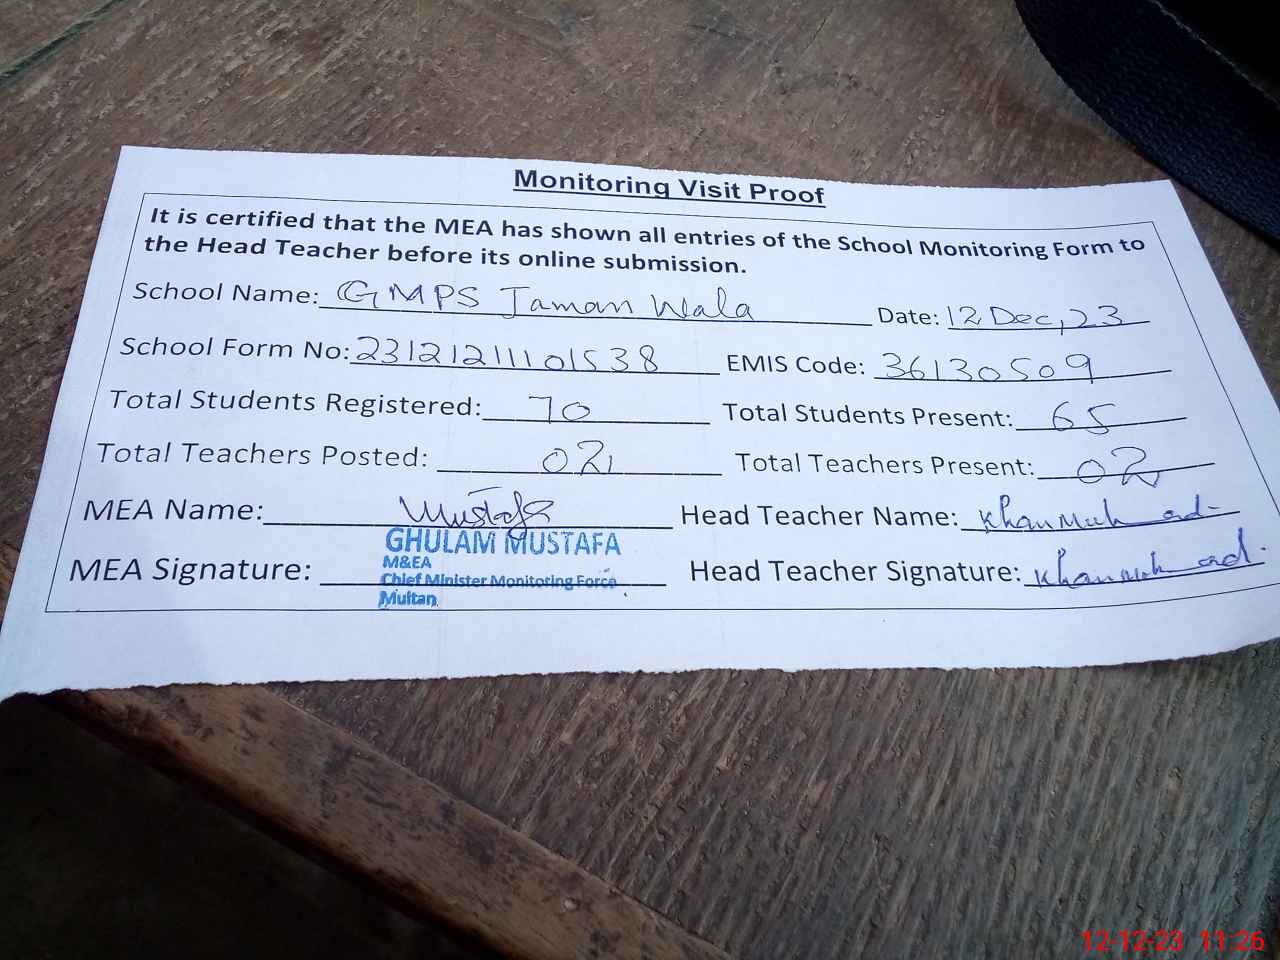 Monitoring Visit Proof
It is certified that the MEA has shown all entries of the School Monitoring Form to
the Head Teacher before its online submission.
School Name: GMPS Jaman Wala Date: 12 Dec, 23
School Form No: 23121211101538 EMIS Code: 36130509
Total Students Registered: 70 Total Students Present: 65
Total Teachers Posted: 02 Total Teachers Present: 02
MEA Name: Mustafa Head Teacher Name: Khan Muhmad
GHULAM MUSTAFA
M&EA
MEA Signature: Chief Minister Monitoring Force Head Teacher Signature: Khan Muhmad
Multan
12-12-23 11:26